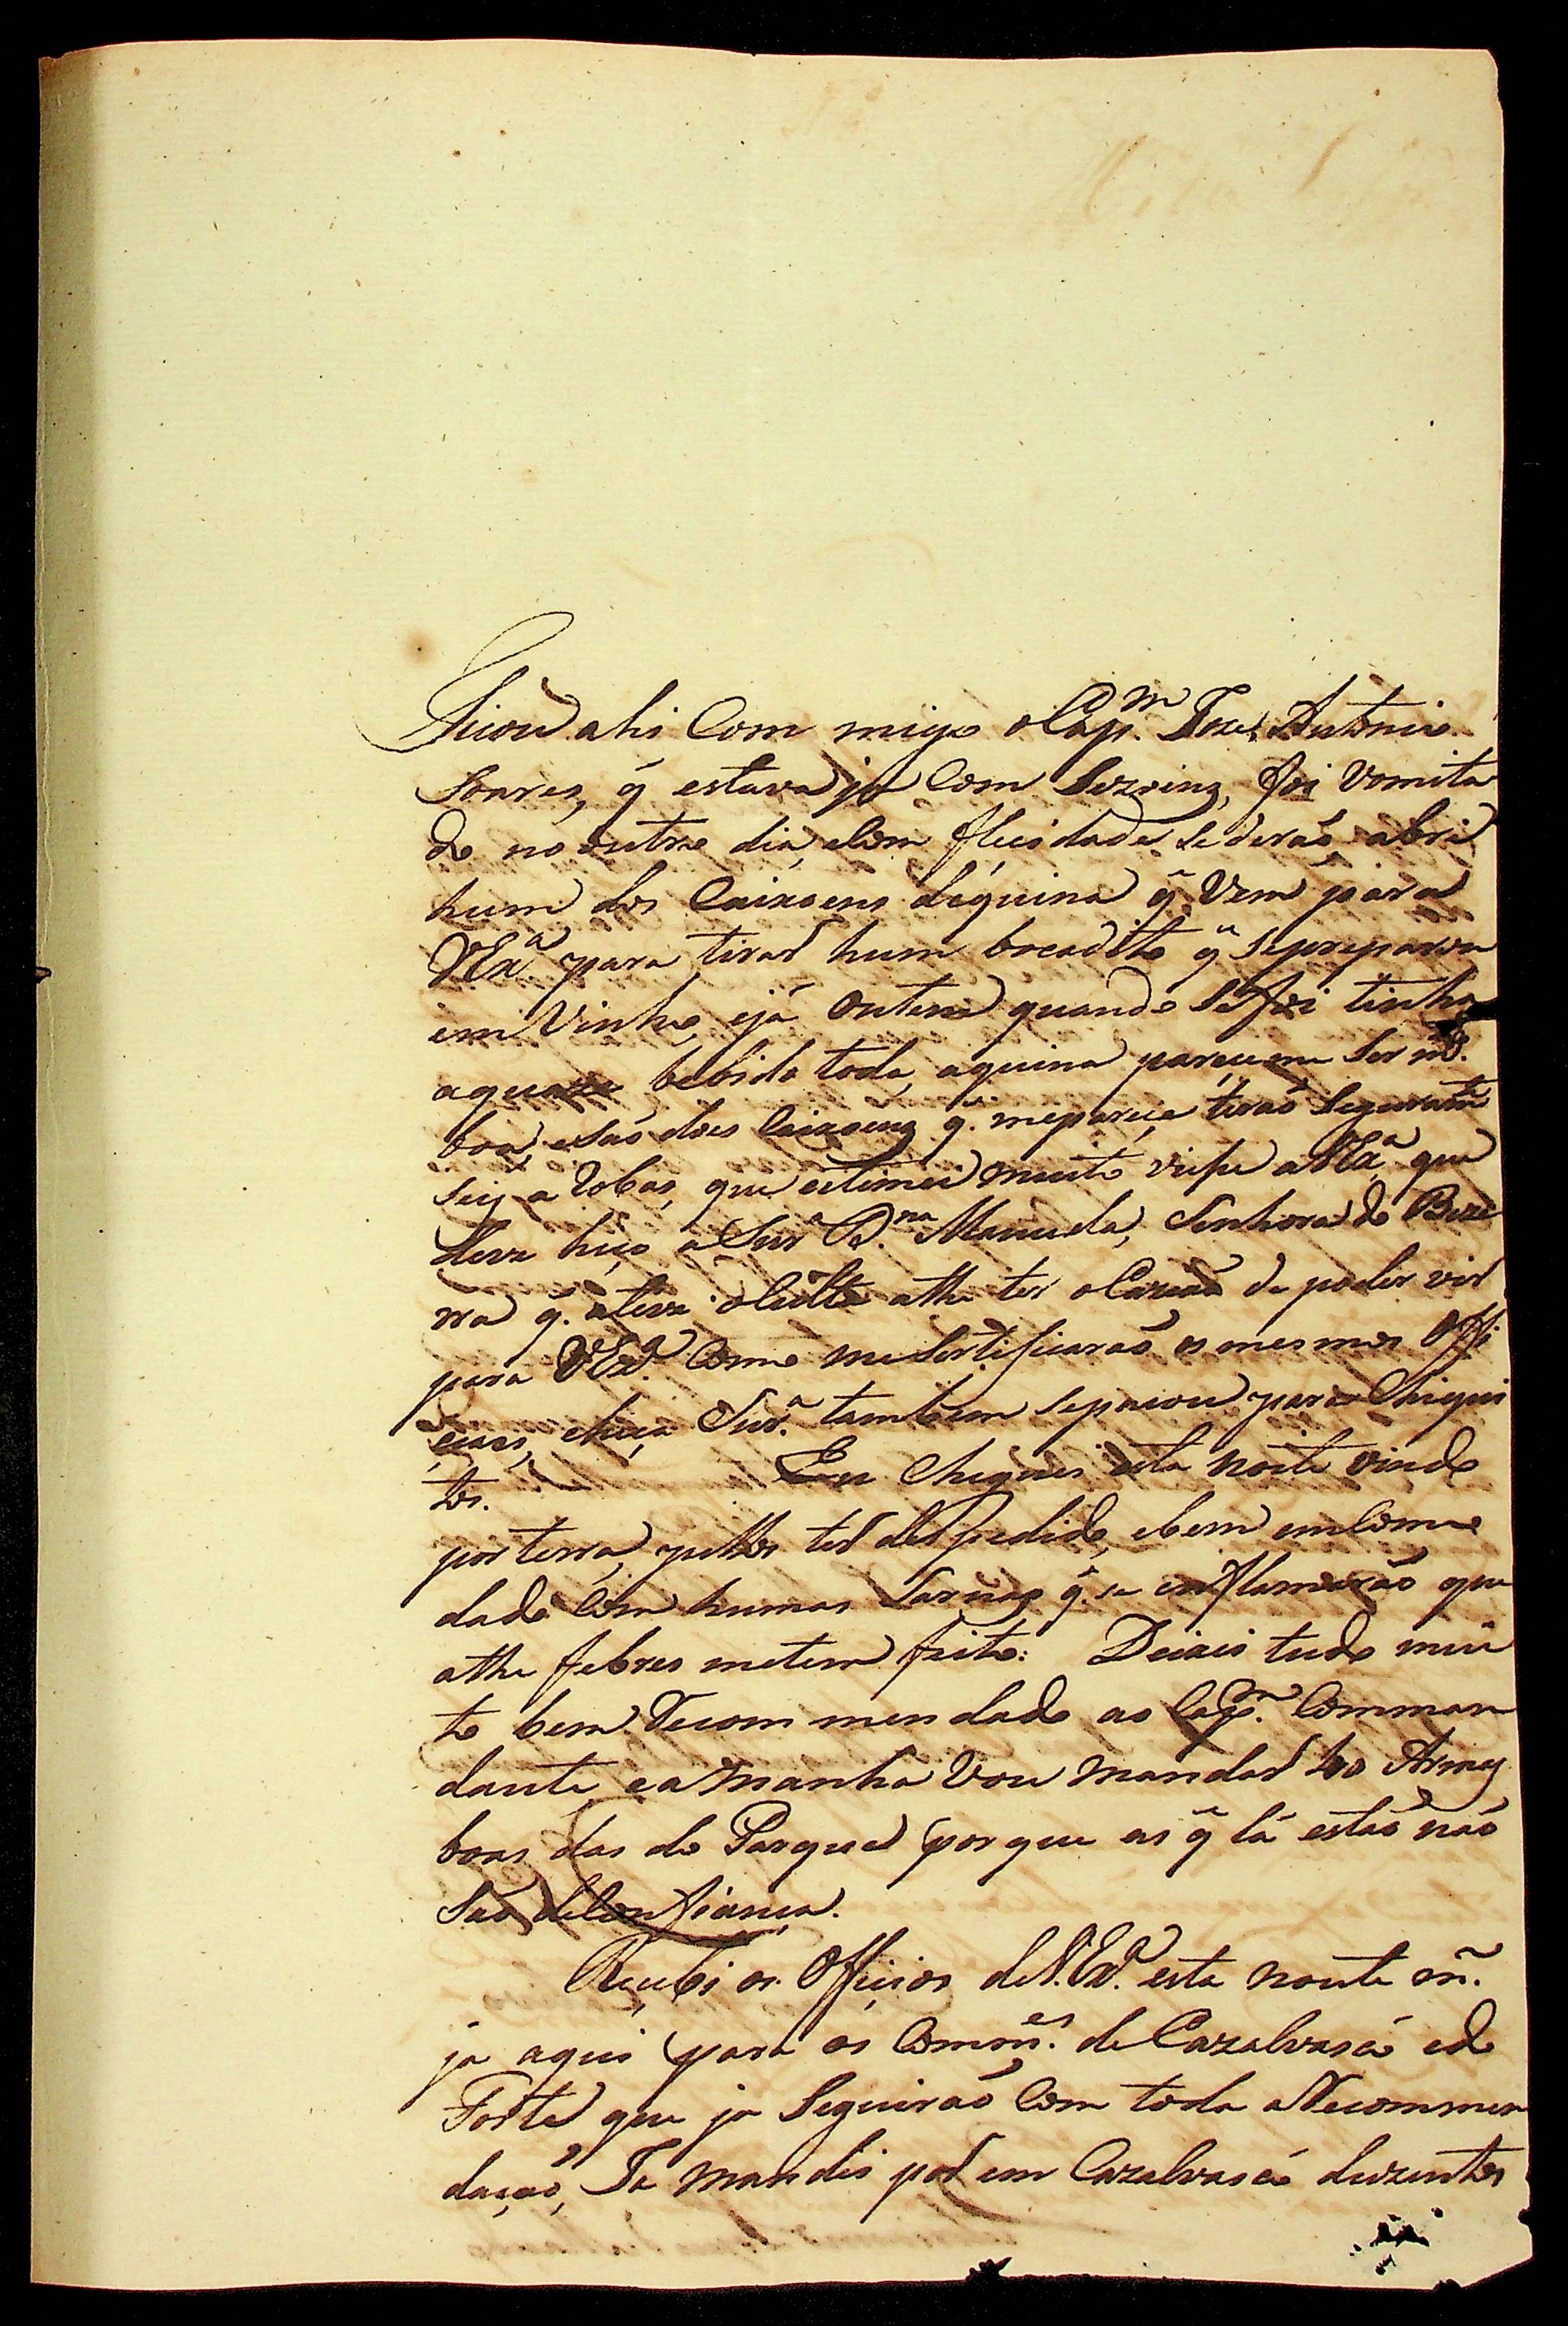 Ficou ahi Com migo o Cap.m Joze Antonio
Soares, q̃ estava ja Com Sezoens, foi Vomita
do no outro dia, e Com flicidade se derão abri
hum dos Caixoens de quina q̃ Vem para
VExª para tirar hum bocadito q̃ se preparou
em Vinho, e já Ontem quando se foi tinha
agua bebida toda, a quina pareceme Ser m.to
boa, e São dois Caixoens q̃ me parece terão Seguram.te
Seis arobas, que estimei muito viese a VExª que
deve hiço a Snrª D.na Manuela, Senhora do Beze
rra q̃. a teve oculta athe ter o Cazião de poder vir
para VExª. Como me Sertificarão os mesmos Offi
ciaes, e hiça Snrª. tambem se paçou para Chiqui
tos. Eu cheguei esta noite vindo
por terra, pellos ter despedido, e bem em Como
dado Com humas Sarnas q̃. se emflamarão que
athe febres me tem feito: Deixei tudo mui
to bem Recommendado ao Cap.m Comman
dante e a Manha Vou mandar 40 Armas
boas das do Parque porque as q̃ lá estão não
São de Confiança.
Recebi os Officios de V.Exª. esta noute
ja aqui para os Comm.es de Cazalvasco e do
Forte que ja Seguirão Com toda a Recommen
dação, Ja Mandei por em Cazalvasco duzentos